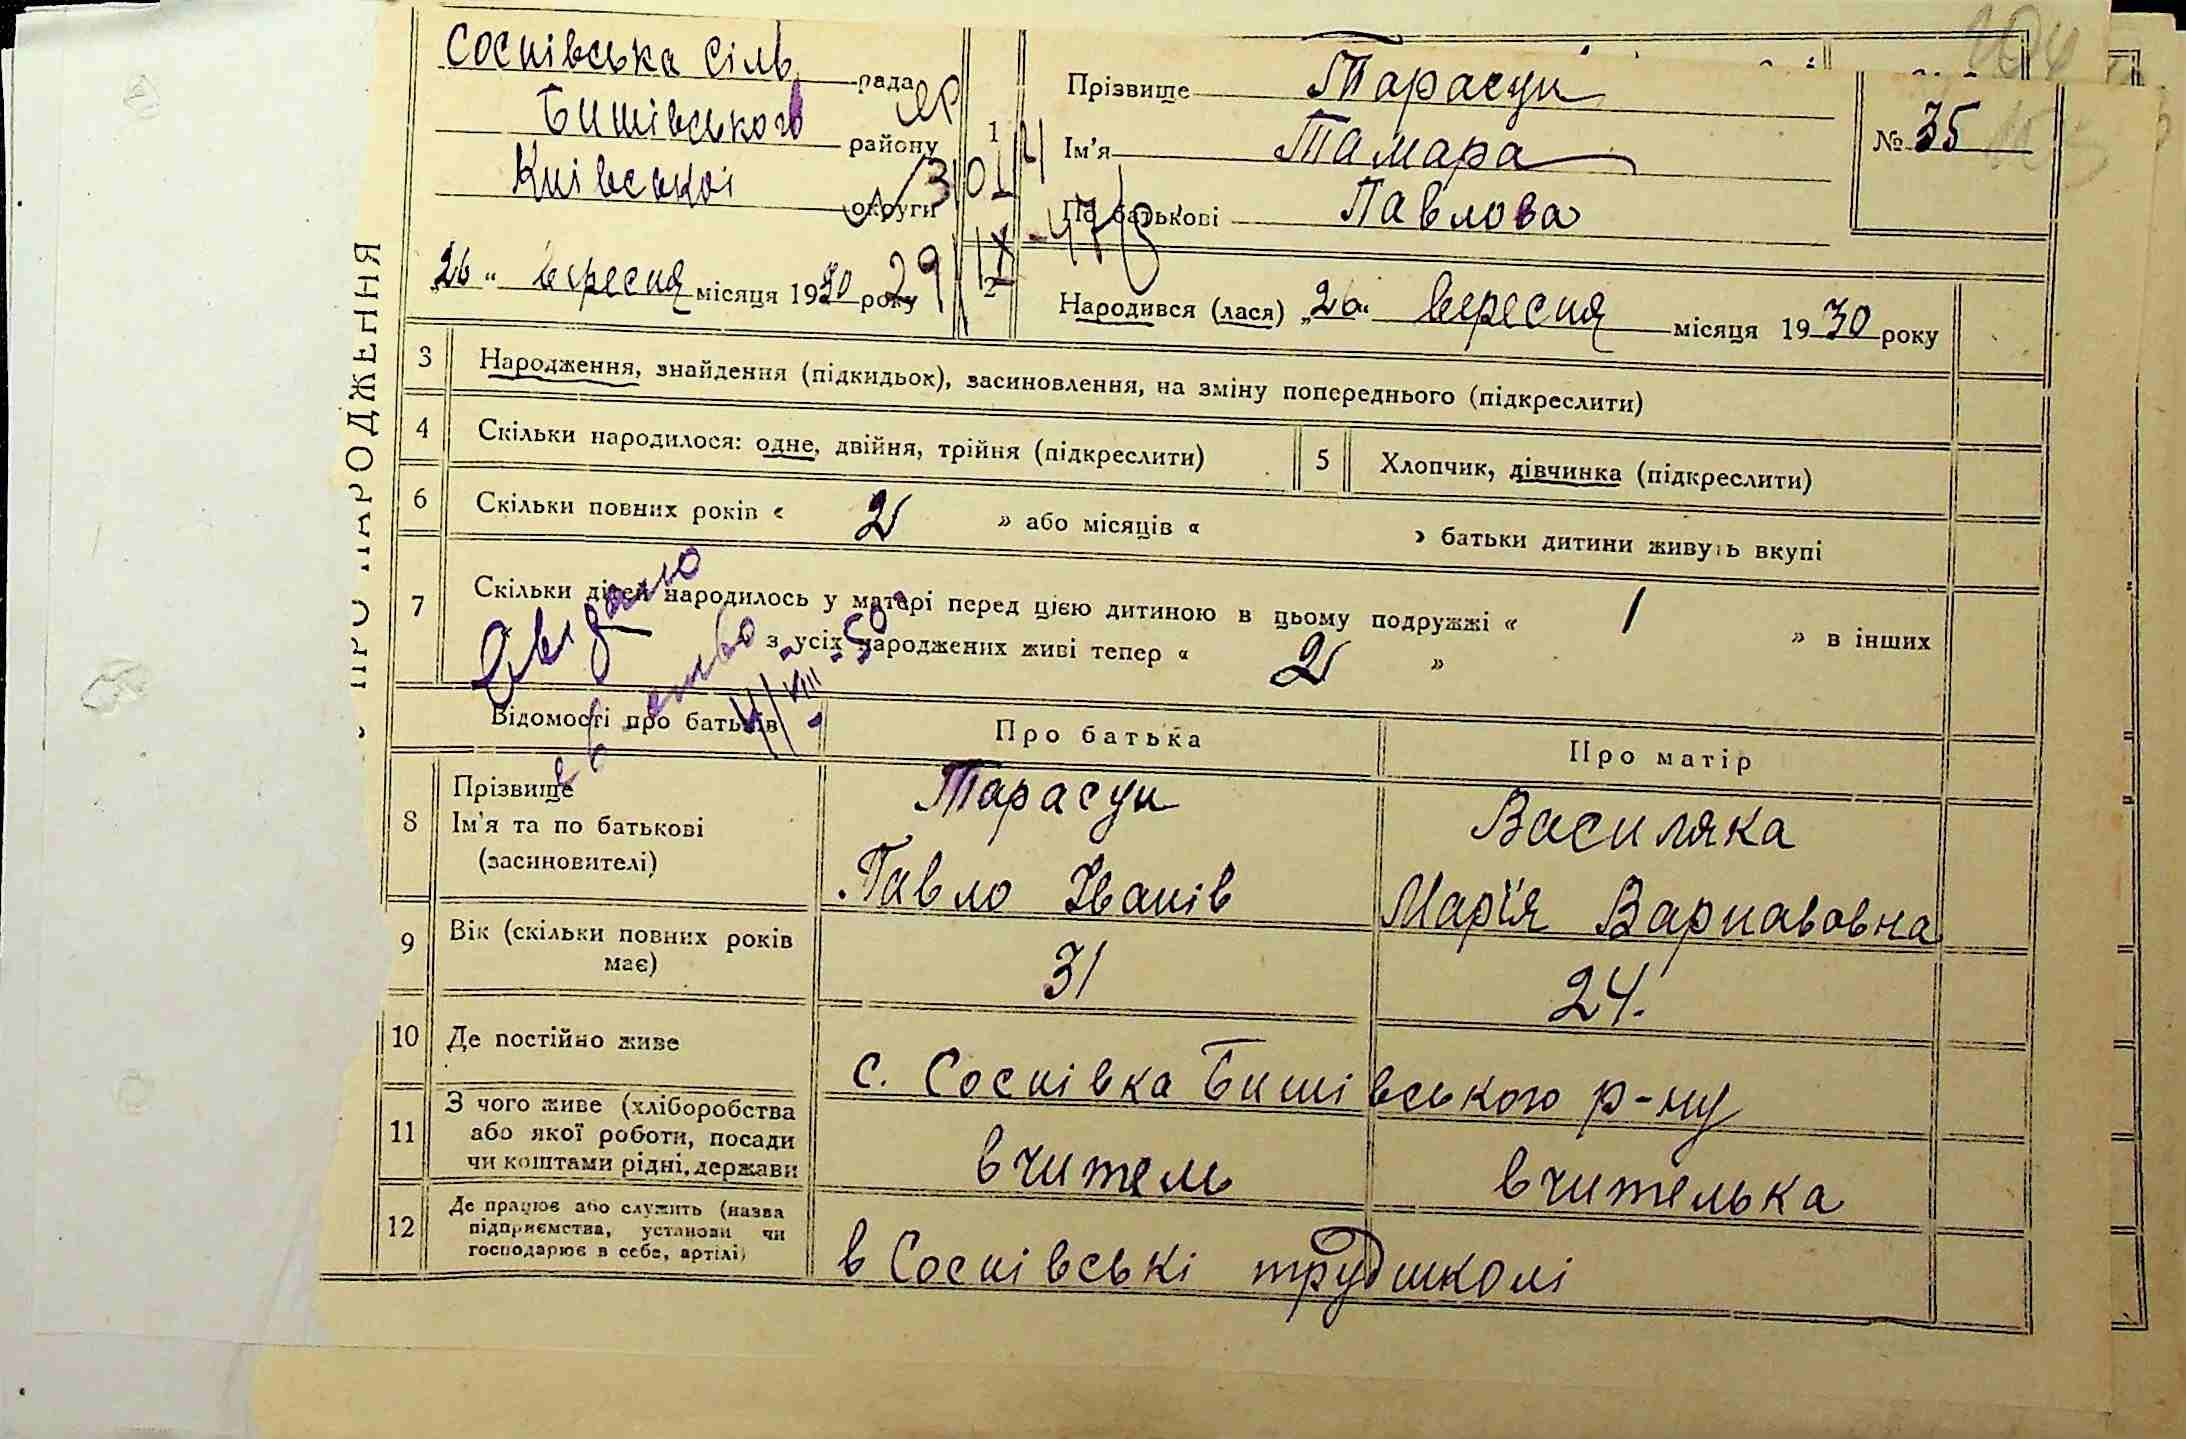 ПРО НАРОДЖЕННЯ
Соснівська сіль рада
Бишівського району
Київської округи
„26" вересня місяця 1930 року
1
Прізвище Тарасун
Ім'я Тамара
По батькові Павлова
№ 35
2
Народився (лася) „26" вересня місяця 1930 року
3 Народження, знайдення (підкидьок), засиновлення, на зміну попереднього (підкреслити)
4 Скільки народилося: одне, двійня, трійня (підкреслити)
5 Хлопчик, дівчинка (підкреслити)
6 Скільки повних років « 2 » або місяців « » батьки дитини живуть вкупі
7 Скільки дітей народилось у матері перед цією дитиною в цьому подружжі « 1 » в інших
з усіх народжених живі тепер « 2 »
Відомості про батьків
Про батька
Про матір
8 Прізвище
Ім'я та по батькові
(засиновителі)
Тарасун
Павло Іванів
Василяка
Марія Варнавовна
9 Вік (скільки повних років
має)
31
24.
10 Де постійно живе
с. Соснівка Бишівського р-ну
11 З чого живе (хліборобства
або якої роботи, посади
чи коштами рідні, держави
вчитель
вчителька
12 Де працює або служить (назва
підприємства, установи чи
господарює в себе, артілі)
в Соснівські трудшколі